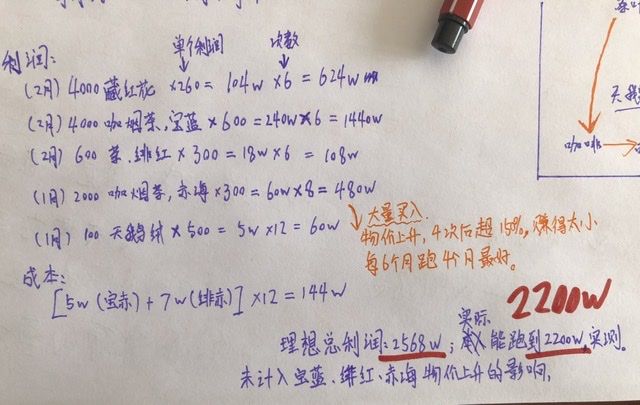 单个利润 次数
利润:
(2月) 4000 藏红花 ×260 = 104w ×6 = 624w
(2月) 4000 咖烟茶,宝蓝 × 600 = 240w×6 = 1440w
(2月) 600 茶、绯红 × 300 = 18w ×6 = 108w
(1月) 2000 咖烟茶,赤海 ×300 = 60w×8 = 480w
(1月) 100 天鹅绒 × 500 = 5w ×12 = 60w
大量买入
物价上升,4次后超150%,赚得太小
每6个月跑4个月最好。
成本:
[5w (宝赤) + 7w (绯赤)] ×12 = 144w
2200w
实际
理想总利润:2568w; 能跑到2200w,实测。
未计入宝蓝、绯红、赤海物价上升的影响,
天鹅
咖啡